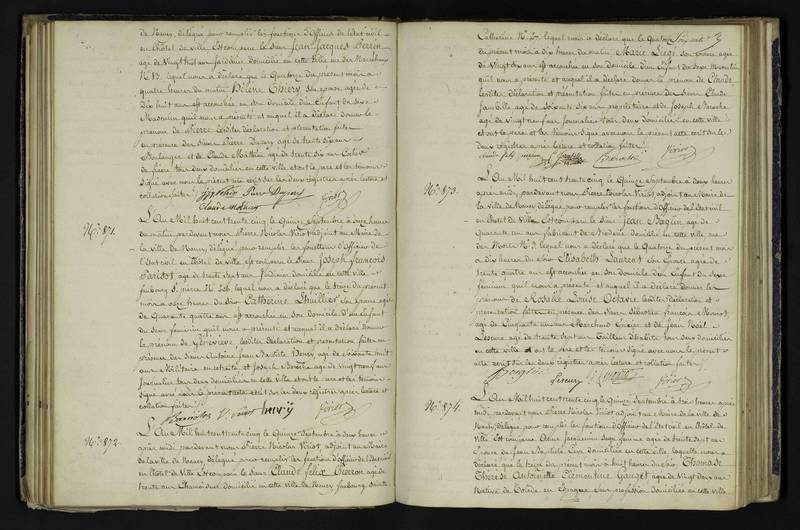 de Nancy, délégué pour remplir les fonctions d'Officier de l'état civil
en l'hôtel de ville Est comparu le Sieur Jean Jacques Perrin
âgé de Vingt huit ans Jardinier domicilié en cette Ville rue des Maréchaux
N° 13. lequel nous a déclaré que le Quatorze du présent mois à
quatre heures du matin Hélène Thiery son épouse âgée de
Dix huit ans est accouchée en son domicile d'un Enfant du Sexe
Masculin qu'il nous a présenté et auquel il a déclaré donner le
prénom de Pierre lesdites déclaration et présentation faites
en présence des Sieurs Pierre Dupary âgé de trente six ans
Boulanger et de Claude Mathieu âgé de trente six ans Cocher
de fiacre tous deux domiciliés en cette ville et ont le père et les témoins
Signé avec nous le présent acte écrit sur les deux registres après lecture et
collation faites.
Claude Mathieu
N° 871.
L'An Mil huit cent trente cinq le Quinze Septembre à onze heures
du matin, par devant nous Pierre Nicolas Viriot adjoint au Maire de
la Ville de Nancy, délégué pour remplir les fonctions d'Officier de
l'état civil en l'hôtel de ville est comparu le Sieur Joseph François
Parisot âgé de trente sept ans Jardinier domicilié en cette ville
faubourg St. pierre N° lequel nous a déclaré que le treize du présent
mois à sept heures du soir Catherine Lhuillier son épouse âgée
de Quarante quatre ans est accouchée en son domicile d'un Enfant
du Sexe féminin qu'il nous a présenté et auquel il a déclaré donner
le prénom de Geneviève, lesdites déclaration et présentation faites en
présence des Sieurs Antoine Jean Baptiste Henry âgé de Cinquante huit
ans Militaire en retraite et Joseph Baroche âgé de Vingt neuf ans
Journalier tous deux domiciliés en cette ville et ont le père et les témoins
signé avec nous le présent acte écrit sur les deux registres après lecture et
collation faites.
Viriot
N° 872.
L'An Mil huit cent trente cinq le Quinze Septembre à deux heures
après midi par devant nous Pierre Nicolas Viriot, adjoint au Maire
de la Ville de Nancy délégué pour remplir les fonctions d'Officier de l'état civil
en l'hôtel de Ville Est comparu le Sieur Claude Félix Pierron âgé de
trente ans Chamoiseur domicilié en cette ville de Nancy faubourg Sainte
Catherine N° lequel nous a déclaré que le Quatorze
du présent mois à dix heures du matin Marie Liégé son épouse âgée
de Vingt six ans est accouchée en son domicile d'un Enfant du Sexe Masculin
qu'il nous a présenté et auquel il a déclaré donner le prénom de Claude,
lesdites déclaration et présentation faites en présence des Sieurs Claude
âgé de Soixante six ans propriétaire et de Joseph Baroche
âgé de vingt neuf ans Journalier tous deux domiciliés en cette ville
et ont le père et les témoins signé avec nous le présent acte écrit sur les
deux registres après lecture et collation faites.
Viriot
N° 873.
L'An Mil huit cent trente cinq le Quinze Septembre à deux heures
après midi, par devant nous Pierre Nicolas Viriot, adjoint au Maire de
la Ville de Nancy, délégué pour remplir les fonctions d'Officier de l'état civil
en l'hôtel de Ville Est comparu le Sieur Jean Baglin âgé de
Quarante un ans fabricant de Broderie domicilié en cette ville rue
des Morts N° 9. lequel nous a déclaré que le Quatorze du présent mois
à dix heures du soir Elisabeth Laurent son épouse âgée de
trente quatre ans est accouchée en son domicile d'un Enfant du Sexe
féminin qu'il nous a présenté et auquel il a déclaré donner les
prénoms de Rosalie Louise Octavie lesdites déclaration et
présentation faites en présence des Sieurs Sébastien François Monnot,
âgé de Cinquante un ans Marchand Epicier et de Jean Noël
âgé de trente sept ans Tailleur d'habits tous deux domiciliés
en cette ville et ont le père et les témoins signé avec nous le présent
acte écrit sur les deux registres après lecture et collation faites.
Viriot
N° 874.
L'An Mil huit cent trente cinq le Quinze Septembre à trois heures après
midi pardevant nous Pierre Nicolas Viriot adjoint au Maire de la ville de
Nancy, délégué pour remplir les fonctions d'Officier de l'état civil en l'hôtel de
Ville Est comparue Jacquemin Sage femme âgée de trente
épouse de Jean Baptiste domiciliée en cette ville, laquelle nous a
déclaré que le treize du présent mois à huit heures du soir Thomase
Thérèse Antoinette Clémentine Gauget âgée de Vingt deux ans
Native de en Espagne, sans profession domiciliée en cette ville